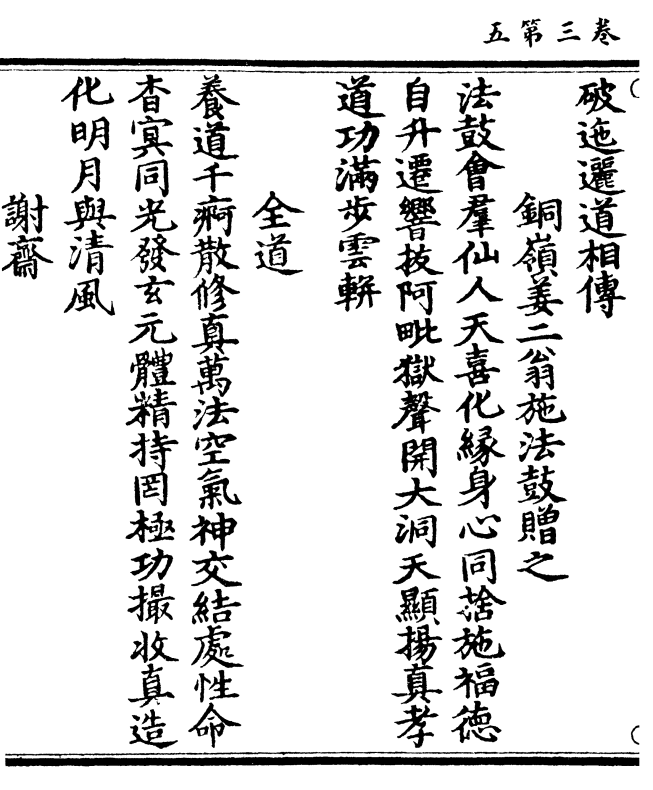 卷三第五
破迤邐道相傳
銅嶺姜二翁施法鼓贈之
法鼓會羣仙人天喜化緣身心同捨施福德
自升遷響拔阿毗獄聲開大洞天顯揚真孝
道功滿步雲軿
全道
養道千痾散修真萬法空氣神交結處性命
杳冥同光發玄元體精持罔極功撮收真造
化明月與清風
謝齋